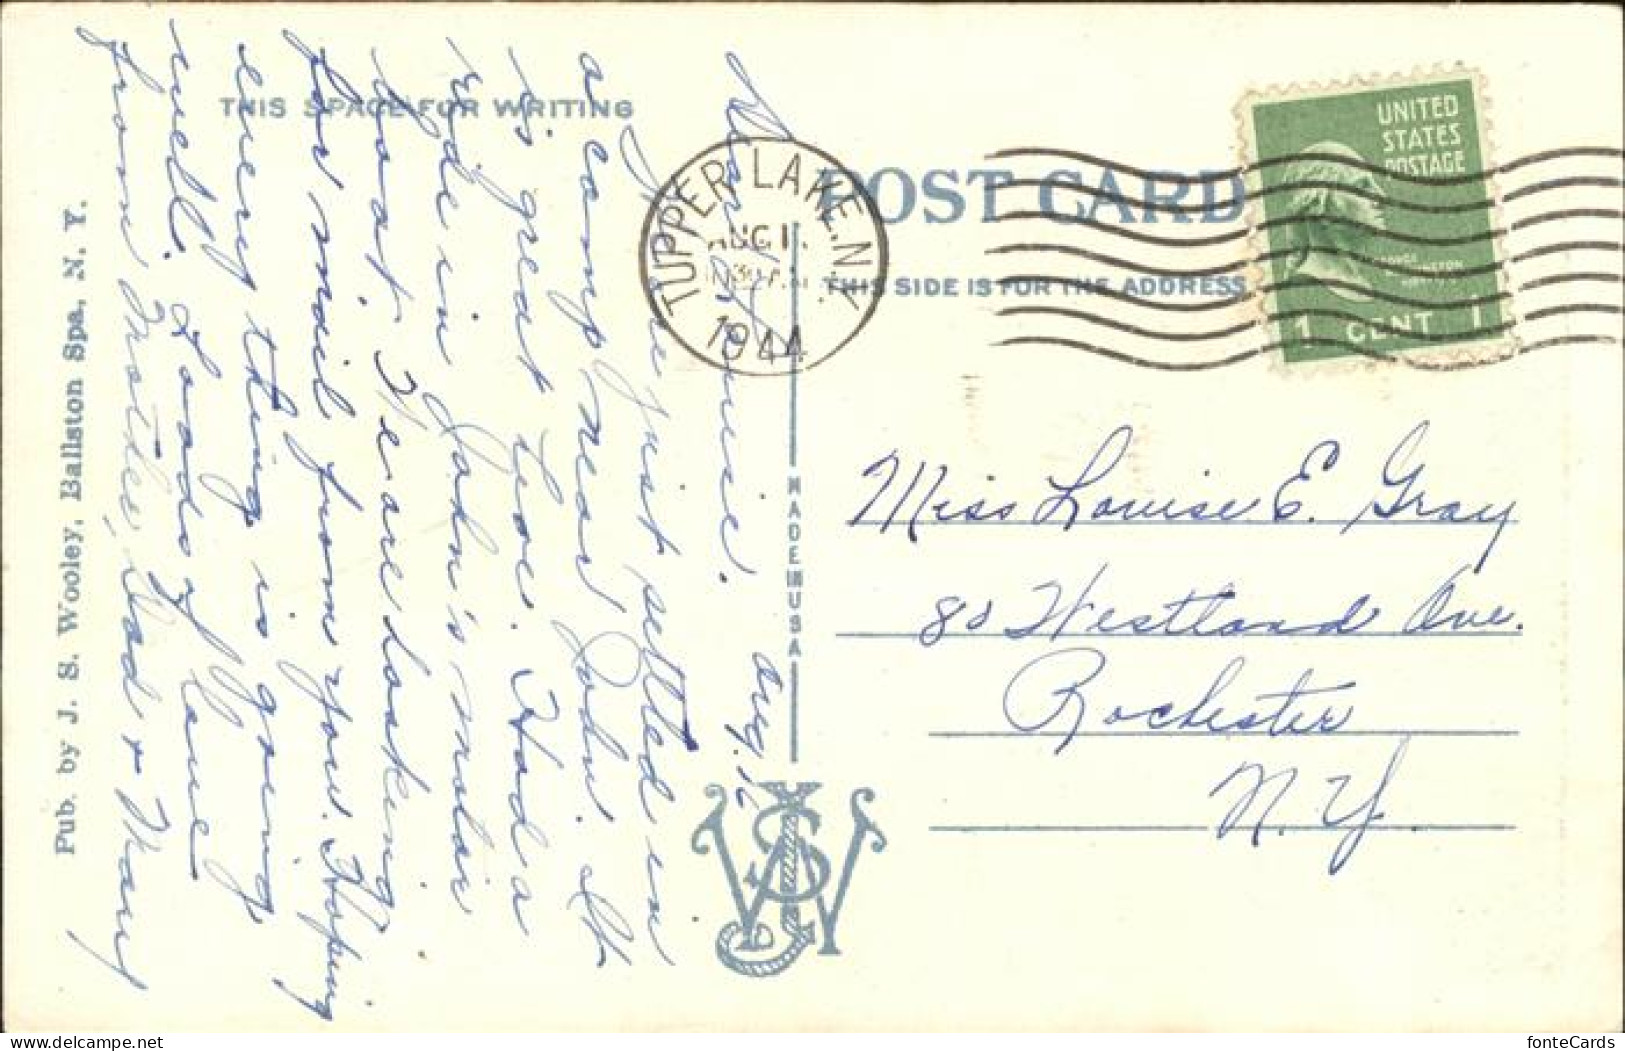 THIS SPACE FOR WRITING
POST CARD
THIS SIDE IS FOR THE ADDRESS
TUPPER LAKE, N.Y.
AUG 1
1944
UNITED
STATES
POSTAGE
1 CENT 1
Aug. 16
Dear Louise.
We are just settled in
a camp near John. It
is great here. Had a
ride in John's motor
boat. We are looking
for mail from you. Hoping
every thing is going
well. Loads of love
from Mother, Dad & Mary
Miss Louise E. Gray
80 Westland Ave.
Rochester
N.Y.
MADE IN USA
Pub. by J. S. Wooley, Ballston Spa, N. Y.
delcampe.net
fonteCards